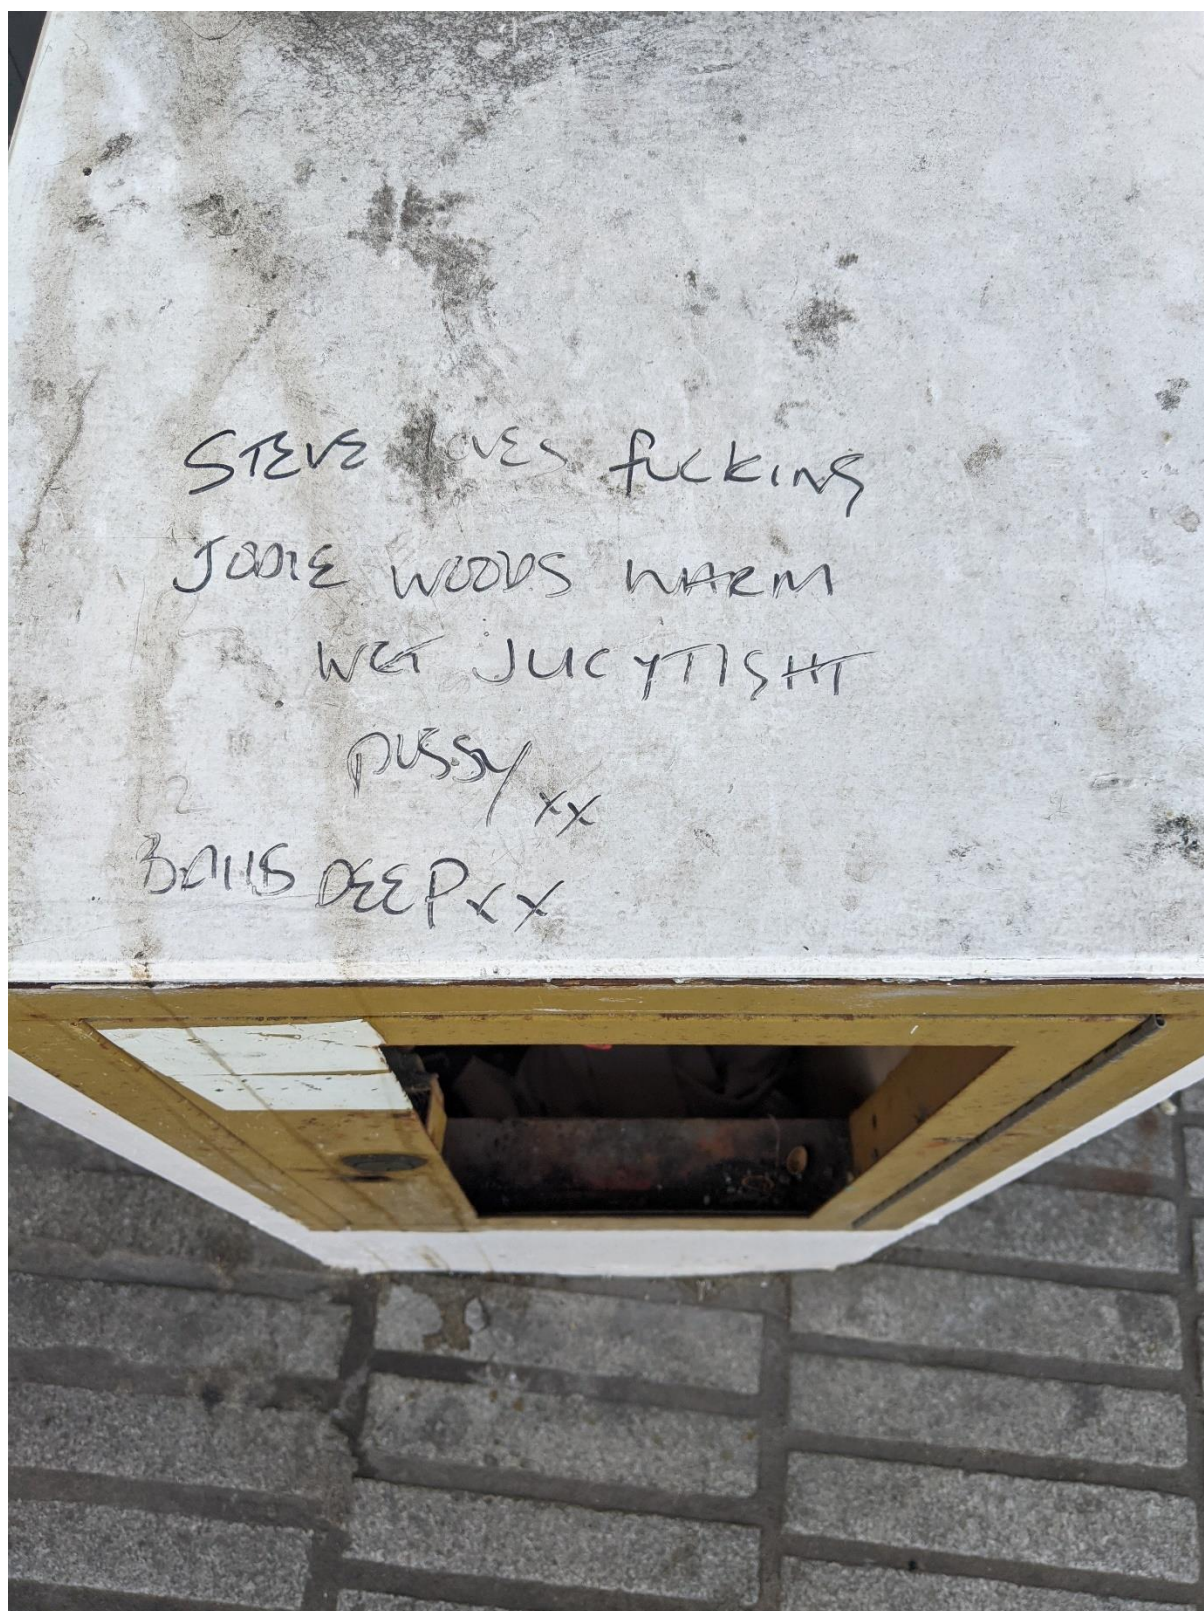 STEVE loves fucking
JODIE WOODS WARM
WET JUCY TIGHT
PUSSY xx
BALLS DEEP xx